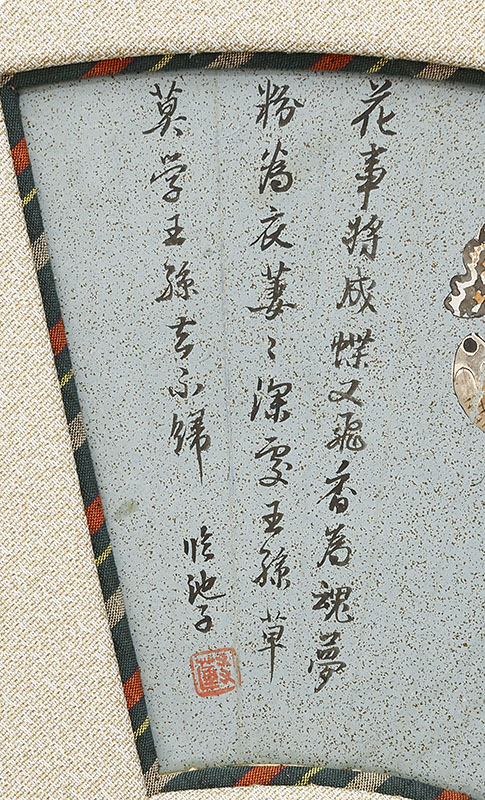 花事將成蝶又飛香為魂夢
粉為衣萋〻深處王孫草
莫学王孫去不歸
臨池子